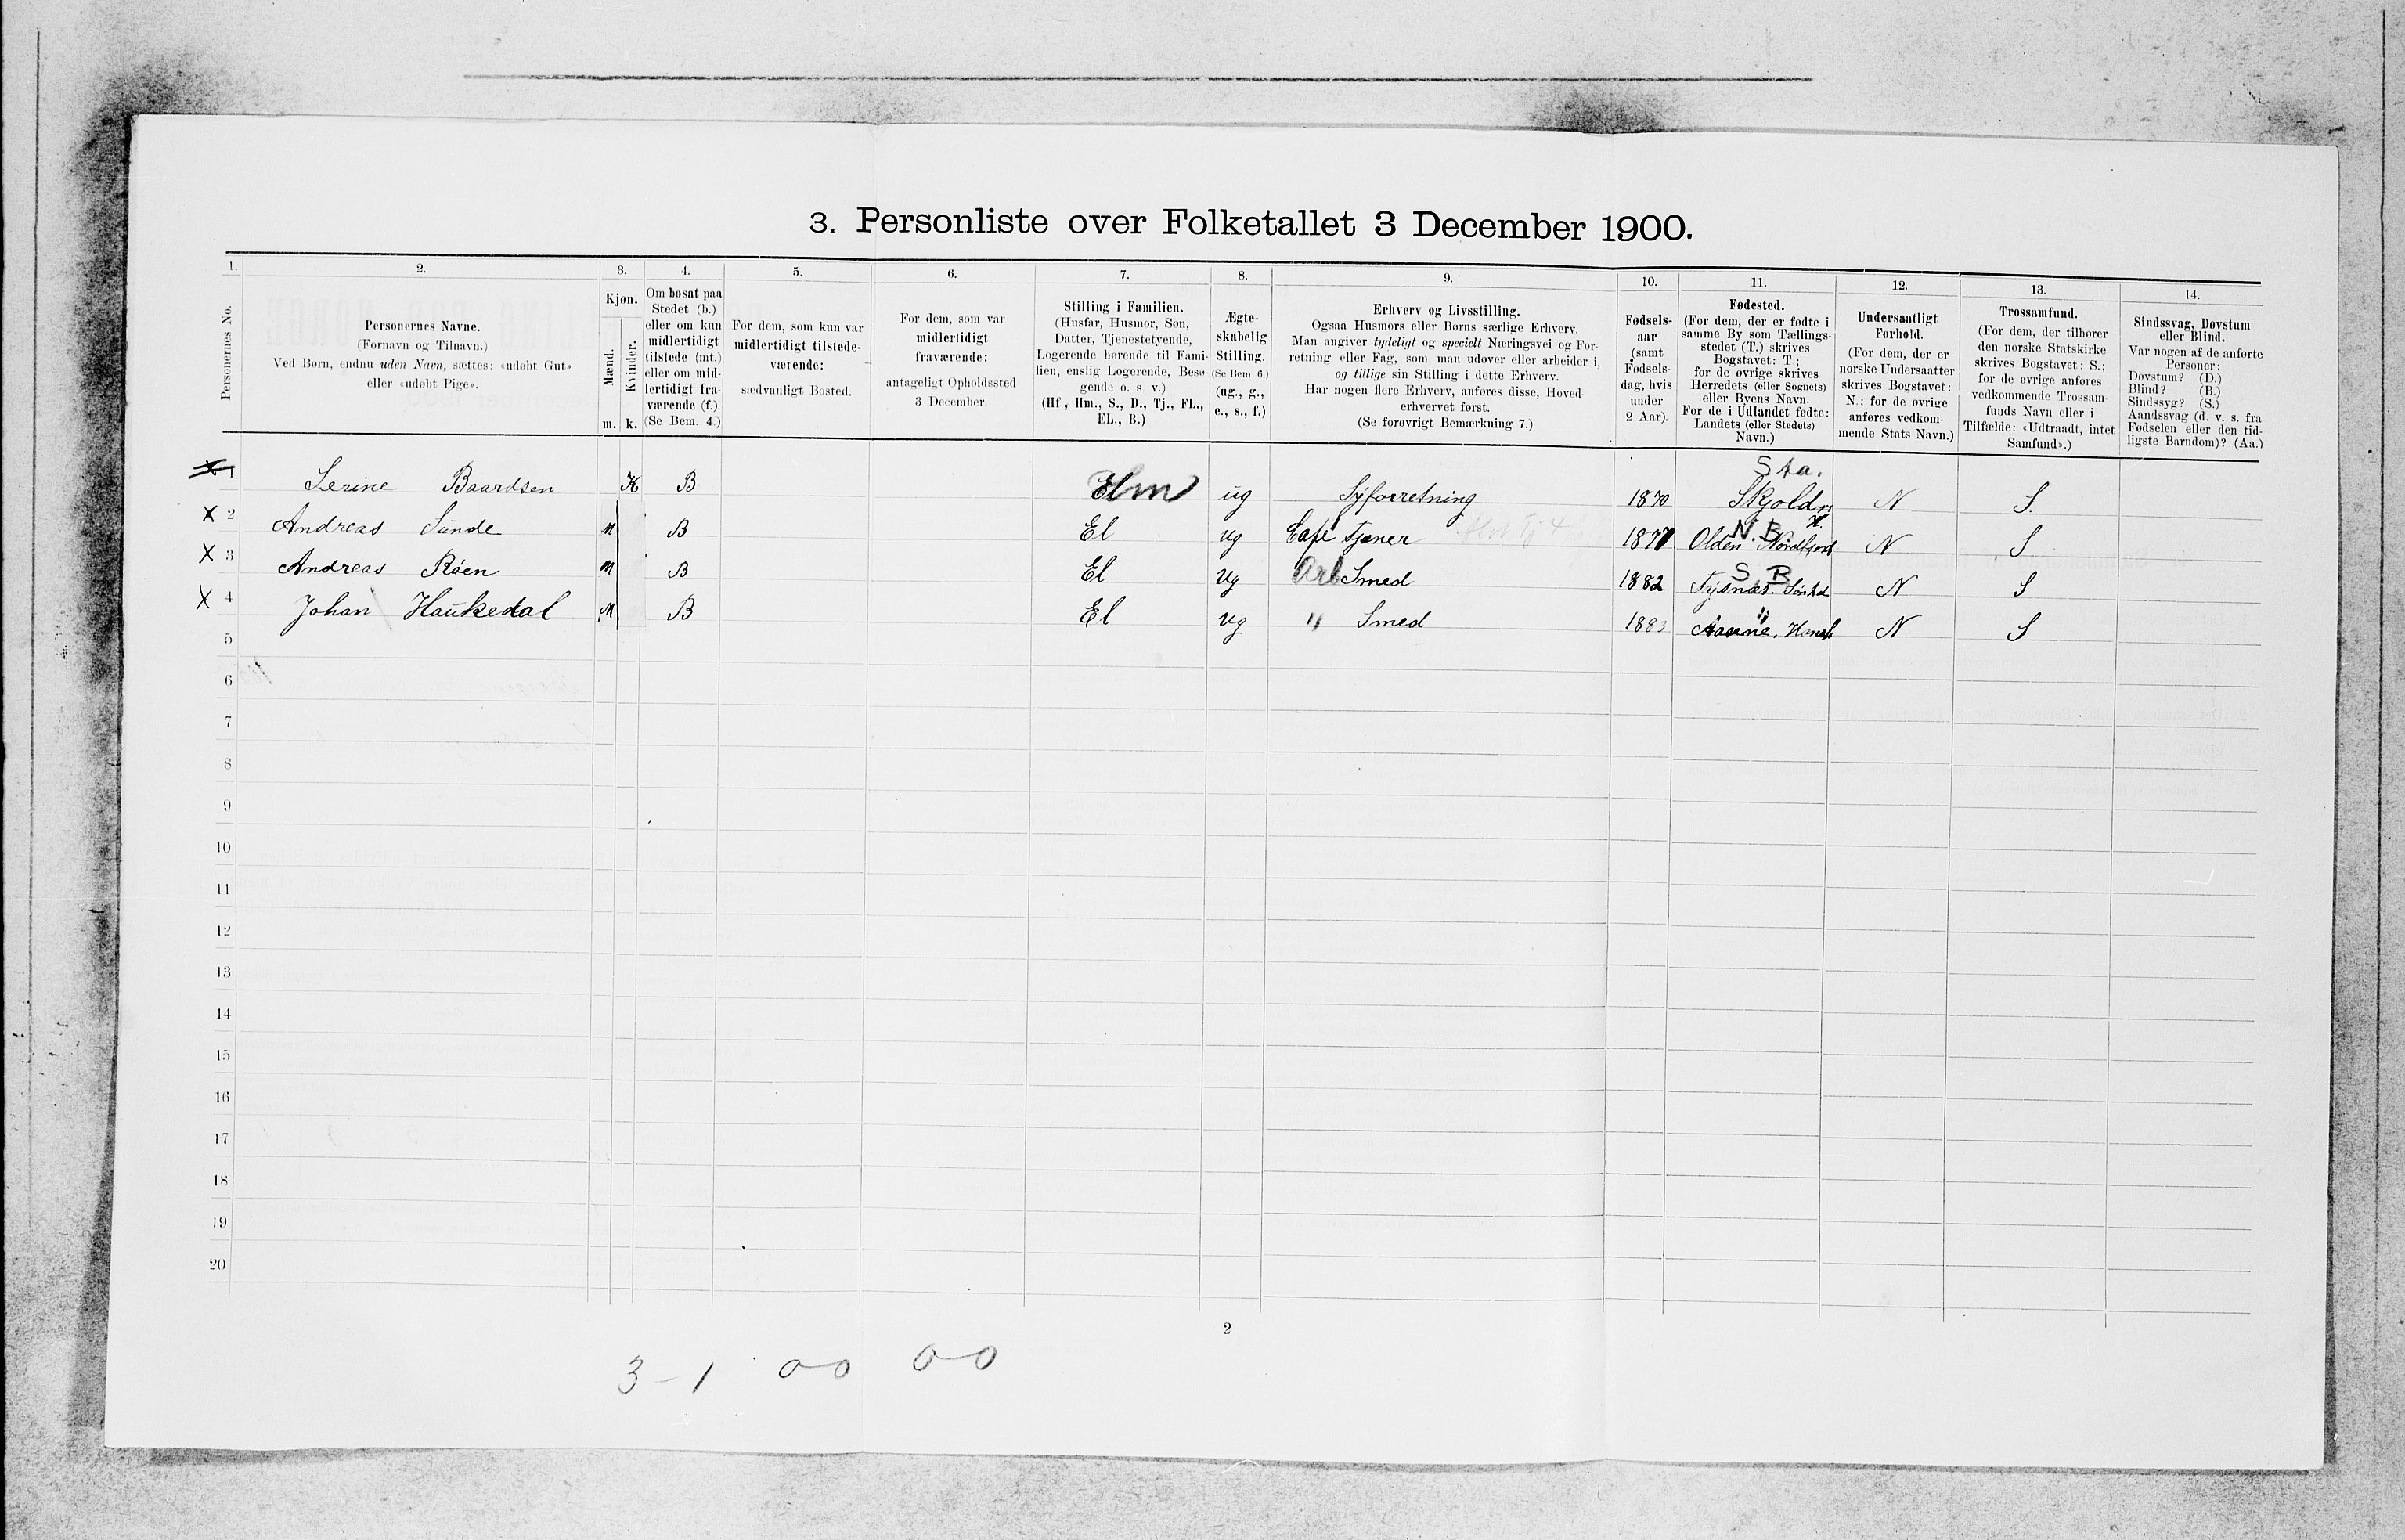 3. Personliste over Folketallet 3 December 1900.
1. 2. 3. 4. 5. 6. 7. 8. 9. 10. 11. 12. 13. 14.
Personernes No.
Personernes Navne.
(Fornavn og Tilnavn.)
Ved Børn, endnu uden Navn, sættes: «udøbt Gut»
eller «udøbt Pige».
Kjøn.
Mænd.
Kvinder.
m. k.
Om bosat paa
Stedet (b.)
eller om kun
midlertidigt
tilstede (mt.)
eller om mid-
lertidigt fra-
værende (f.).
(Se Bem. 4.)
For dem, som kun var
midlertidigt tilstede-
værende:
sædvanligt Bosted.
For dem, som var
midlertidigt
fraværende:
antageligt Opholdssted
3 December.
Stilling i Familien.
(Husfar, Husmor, Søn,
Datter, Tjenestetyende,
Logerende hørende til Fami-
lien, enslig Logerende, Besø-
gende o. s. v.)
(Hf, Hm., S., D., Tj., FL.,
EL., B.)
Ægte-
skabelig
Stilling.
(Se Bem. 6.)
(ug., g.,
e., s., f.)
Erhverv og Livsstilling.
Ogsaa Husmors eller Børns særlige Erhverv.
Man angiver tydeligt og specielt Næringsvei og For-
retning eller Fag, som man udøver eller arbeider i,
og tillige sin Stilling i dette Erhverv.
Har nogen flere Erhverv, anføres disse, Hoved-
erhvervet først.
(Se forøvrigt Bemærkning 7.)
Fødsels-
aar
(samt
Fødsels-
dag, hvis
under
2 Aar).
Fødested.
(For dem, der er fødte i
samme By som Tællings-
stedet (T.) skrives
Bogstavet: T;
for de øvrige skrives
Herredets (eller Sognets)
eller Byens Navn.
For de i Udlandet fødte:
Landets (eller Stedets)
Navn.)
Undersaatligt
Forhold.
(For dem, der er
norske Undersaatter
skrives Bogstavet:
N.; for de øvrige
anføres vedkom-
mende Stats Navn.)
Trossamfund.
(For dem, der tilhører
den norske Statskirke
skrives Bogstavet: S.;
for de øvrige anføres
vedkommende Trossam-
funds Navn eller i
Tilfælde: «Udtraadt, intet
Samfund».)
Sindssvag, Døvstum
eller Blind.
Var nogen af de anførte
Personer:
Døvstum? (D.)
Blind? (B.)
Sindssyg? (S.)
Aandssvag (d. v. s. fra
Fødselen eller den tid-
ligste Barndom)? (Aa.)
Sta.
1 Serine Baardsen K B Hm ug Syforretning 1870 Skjold N S.
N. B
X 2 Andreas Sunde M B El ug Café tjener 1877 Olden Nordfjord N S
S. B
X 3 Andreas Røen M B El ug Arb Smed 1882 Tysnæs. N S
X 4 Johan Haukedal M B El ug " Smed 1883 N S
5
6
7
8
9
10
11
12
13
14
15
16
17
18
19
20
2
3 - 1 0-0 0-0